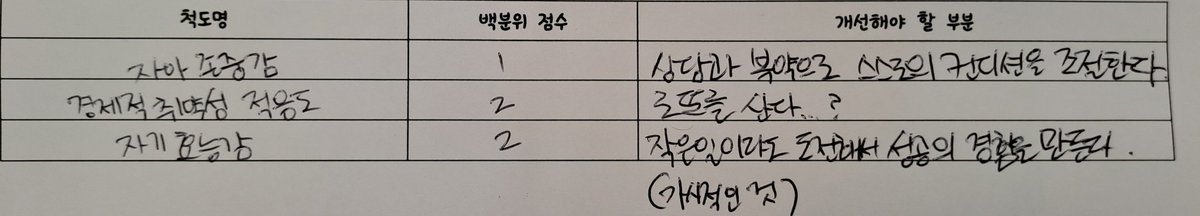 척도명 백분위 점수 개선해야 할 부분
자아 존중감 1 상담과 복약으로 스스로의 컨디션을 조절한다.
경제적 취약성 적응도 2 로또를 산다...?
자기 효능감 2 작은일이라도 도전해서 성공의 경험을 만든다.
(가시적인 것)